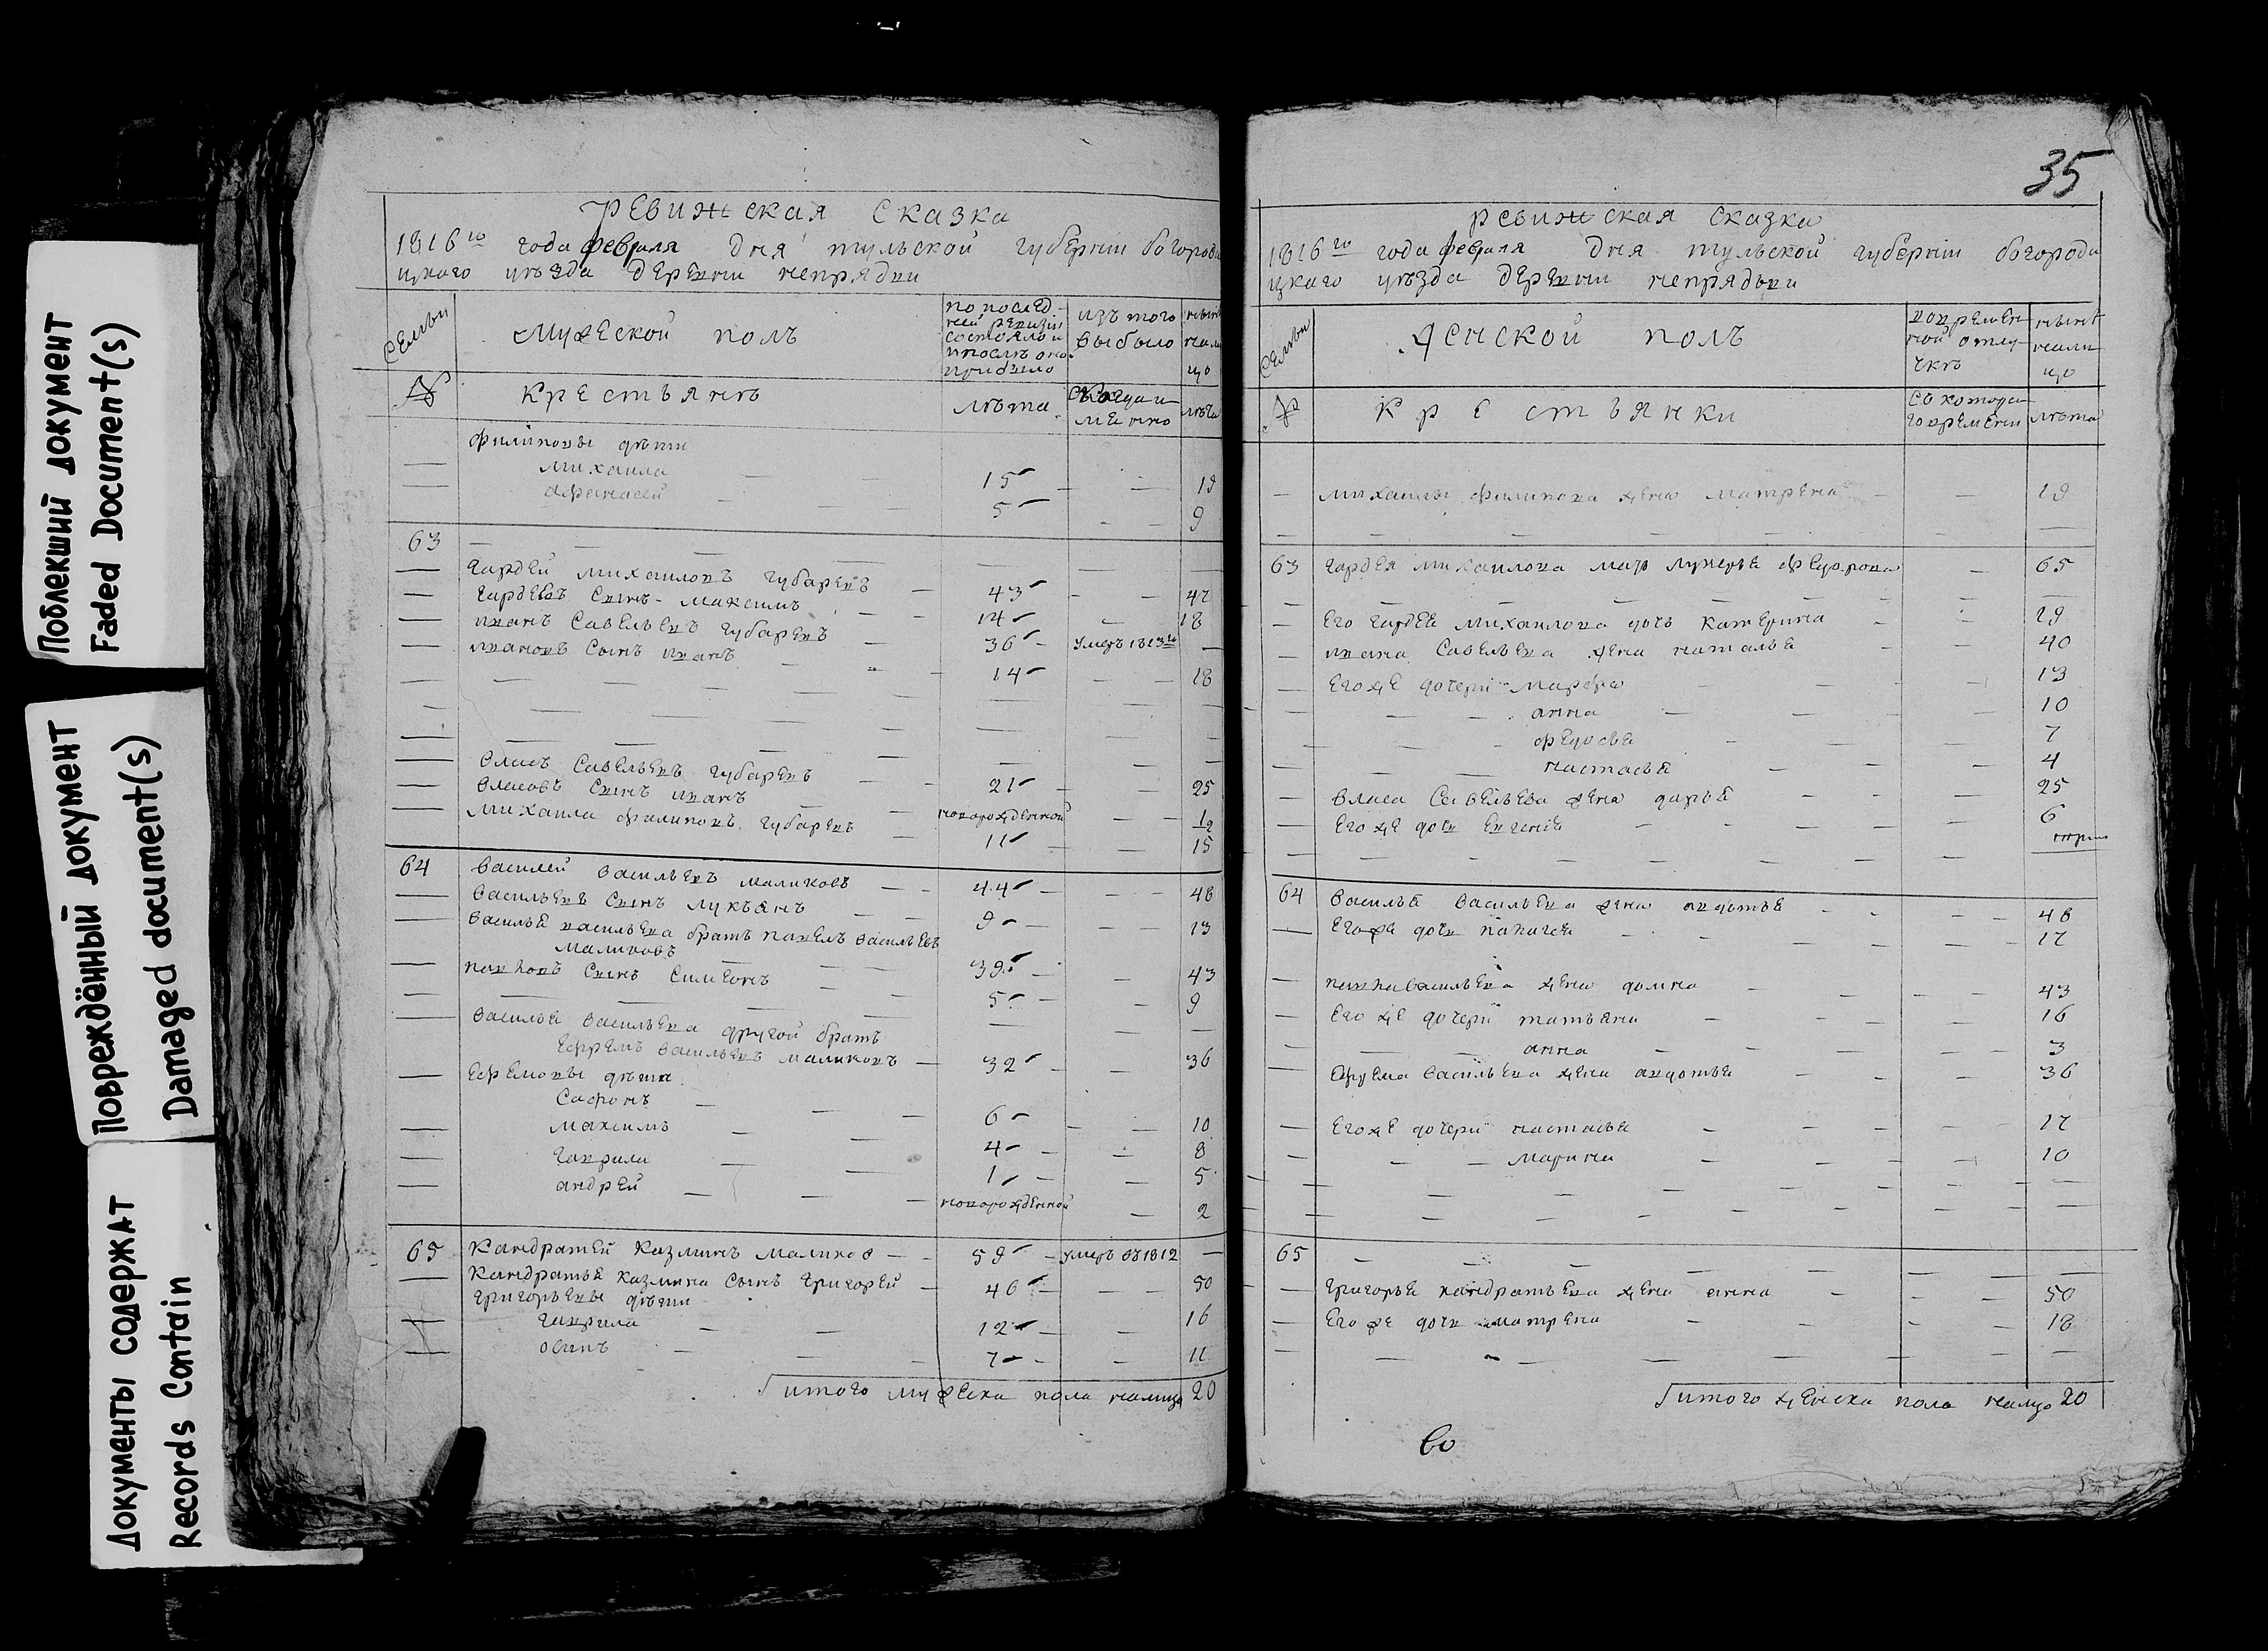 Поблекший документ
Faded Document(s)
Повреждённый документ
Damaged document(s)
Документы содержат
Records Contain
ревижская сказка
1816го года февраля дня тульской губернiи богороди
цкаго уѣзда деревни непрядви
семьи
мужеской полъ
по послед-
ней ревизiи
состояло и
после оно
прибыло
изъ того
выбыло
нынѣ
нали
цо
№
крестьянъ
лѣта
когда и
менно
лѣта
филиповы дѣти
михаила 15 19
афанасей 5 9
63
гардей михаиловъ губаревъ 43 47
гардеевъ сынъ максимъ 14 18
иванъ савельевъ губаревъ 36 умеръ 1813го
ивановъ сынъ иванъ 14 18
власъ савельевъ губаревъ 21 25
власовъ сынъ иванъ новорожденной 1/2
михаила филиповъ губаревъ 11 15
64 василей васильевъ маликовъ 44 48
васильевъ сынъ лукьянъ 9 13
василья васильева братъ павелъ васильевъ
маликовъ 39 43
павловъ сынъ симеонъ 5 9
василья васильева другой братъ
ефремъ васильевъ маликовъ 32 36
ефремовы дѣти
сафонъ 6 10
максимъ 4 8
гаврила 1 5
андрей новорожденной 2
65 кандратей казминъ маликов 59 умеръ въ 1812
кандратья казмина сынъ григорей 46 50
григорьевы дѣти
гаврила 12 16
осипъ 7 11
итого мужеска пола налицо 20
35
ревижская сказка
1816го года февраля дня тульской губернiи богороди
цкаго уѣзда деревни непрядьви
семьи
женской полъ
во времен
ной отлу
чкѣ
нынѣ
нали
цо
№
крестьянки
съ котора
го времени
лѣта
михаилы филипова жена матрена 19
63 гардея михаилова мать лукерья федорова 65
его гардея михаилова дочь катерина 19
ивана савельева жена наталья 40
его же дочери марфа 13
анна 10
федосья 7
настасья 4
власа савельева жена дарья 25
его же дочь евгенiя 6
64 василья васильева жена авдотья 48
его же дочь пелагея 17
павла васильева жена домна 43
его же дочери татьяна 16
анна 3
ефрема васильева жена авдотья 36
его же дочери настасья 17
марина 10
65
григорья кандратьева жена анна 50
его же дочь матрена 18
итого женска пола налицо 20
во